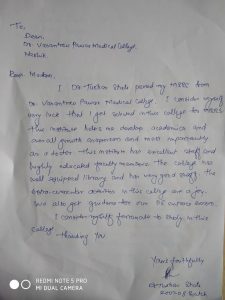 To,
Dean,
Dr Vasantrao Pawar Medical College,
Nashik
Madam,
I Dr Tushar passed my MBBS from
Dr. Vasantrao Pawar Medical College. I consider myself
very luck that I got selected in this college for MBBS
This institute helps me develop academics and
overall growth as person and most importantly
as a doctor. This institute has excellent staff and
highly educated faculty members. The college has
well equipped library and has very good staff. The
extra-curricular activities in this college are a joy.
We also get guidance for our PG entrance exams.
I consider myself fortunate to study in this
College.
Thanking You
Yours faithfully
Batch
REDMI NOTE 5 PRO
MI DUAL CAMERA